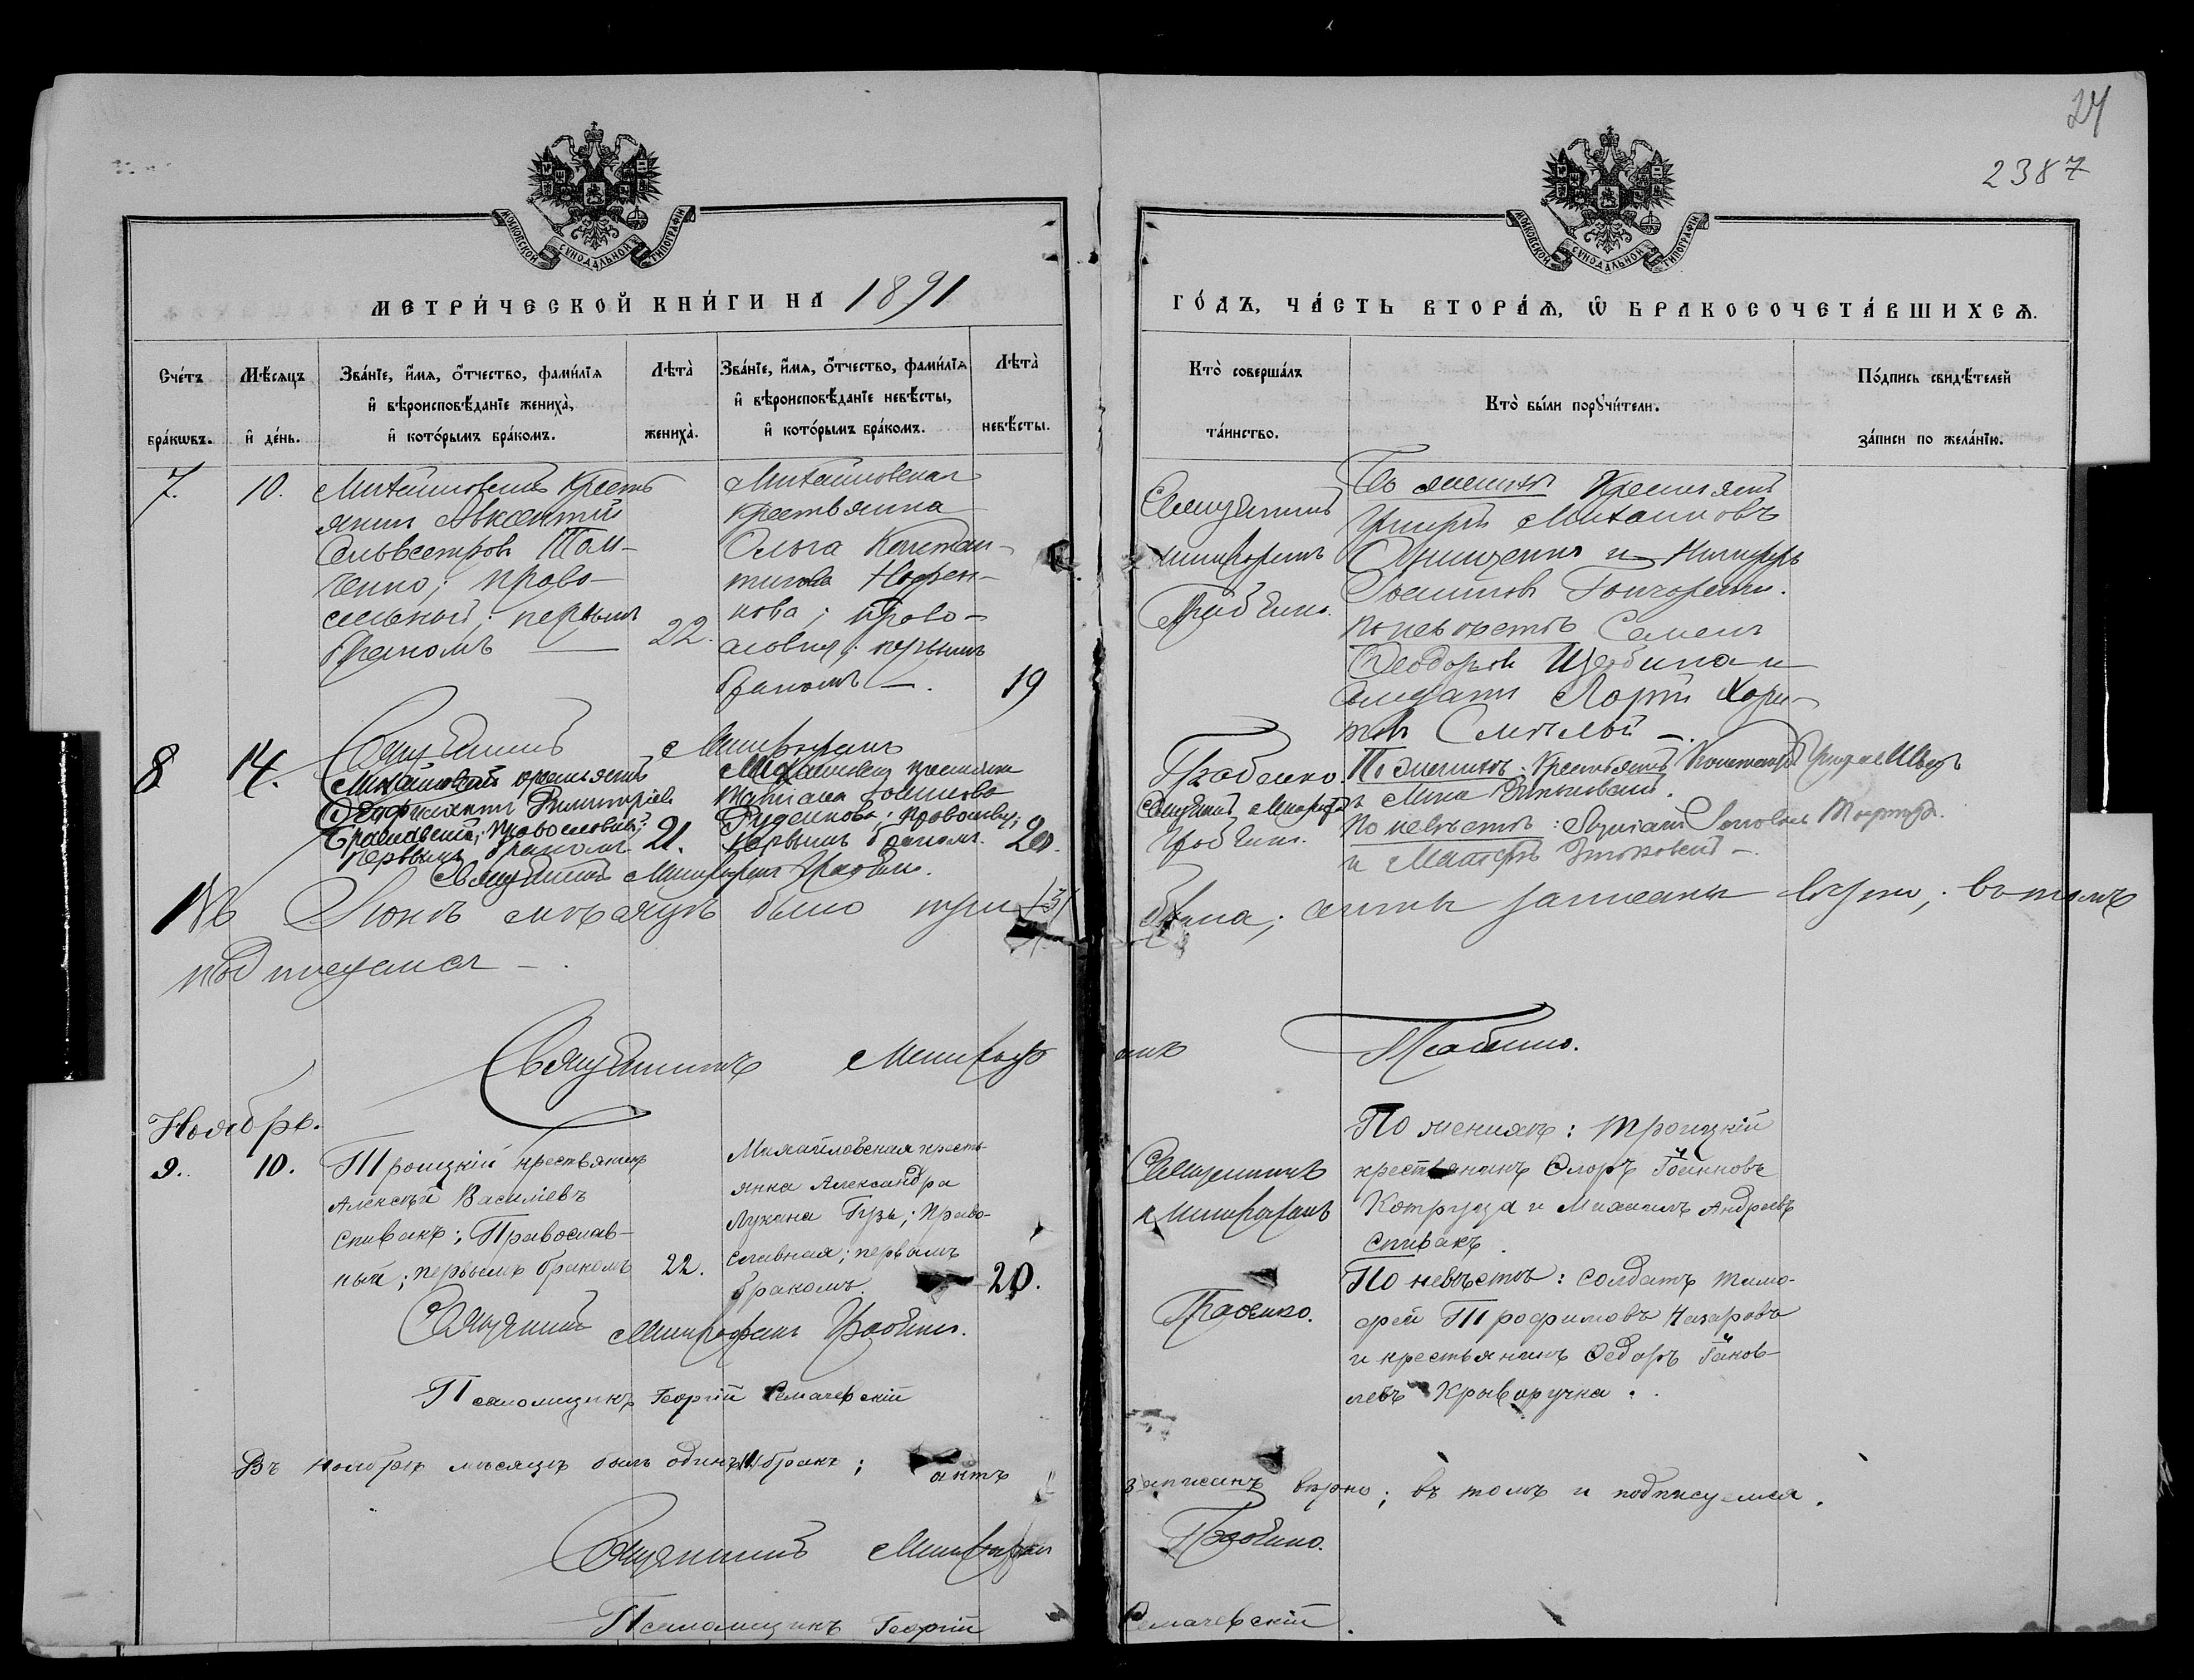 24
2387
МОСКОВСКОЙ СѴНОДАЛЬНОЙ ТИПОГРАФІИ
МОСКОВСКОЙ СѴНОДАЛЬНОЙ ТИПОГРАФІИ
МЕТРИ́ЧЕСКОЙ КНИ́ГИ НА 1891
ГО́ДЪ, ЧА́СТЬ ВТОРА́Ѧ, Ѽ БРАКОСОЧЕТА́ВШИХСѦ.
Сче́тъ бра́кѡвъ.
Мѣ́сѧцъ и҆ де́нь.
Зва́нїе, и҆́мѧ, ѻ҆́тчество, фами́лїѧ
и҆ вѣроисповѣ́данїе жениха̀,
и҆ кото́рымъ бра́комъ.
Лѣта̀ жениха̀.
Зва́нїе, и҆́мѧ, ѻ҆́тчество, фами́лїѧ
и҆ вѣроисповѣ́данїе невѣ́сты,
и҆ кото́рымъ бра́комъ.
Лѣта̀ невѣ́сты.
Кто̀ соверша́лъ та́инство.
Кто̀ бы́ли порꙋчи́тели.
По́дпись свидѣ́телей
за́писи по жела́нїю.
7. 10.
Михайловскій кресть
янинъ Авксентій
Сильвестровъ
ченко; право-
славный; первымъ
бракомъ 22.
Михайловская
крестьянка
Ольга Констан-
тинова
кова; право-
славная; первымъ
бракомъ. 19
Священникъ
Митрофанъ
Грабенко.
По женихѣ крестьяне
Михаиловъ
Онищенко и
Гончаренко.
По невѣстѣ Семенъ
Феодоровъ Щербина и
Хари-
тоновъ
Священникъ Митрофанъ Грабенко.
8 14.
Михайловскій крестьянинъ
Димитріевъ
православный;
первымъ бракомъ 21.
Михайловская крестьянка
Татіана
Руденкова; православн;
первымъ бракомъ. 20.
Священникъ Митрофанъ
Грабенко.
По женихѣ: крестьяне
По невѣстѣ:
Священникъ Митрофанъ Грабенко.
Въ Іюнѣ мѣсяцѣ было три /3/ брака; акты записаны вѣрно; въ томъ
подписуемся.
Священникъ Митрофанъ Грабенко.
Ноябрь.
9. 10.
Троицкій крестьянинъ
Алексѣй Василіевъ
Спивакъ; Православ-
ный; первымъ бракомъ 22.
Михайловская кресть-
янка Александра
Лукина Гузь; Право-
славная; первымъ
бракомъ. 20.
Священникъ
Митрофанъ
Грабенко.
По женихѣ: Троицкій
крестьянинъ Флоръ
и Михаилъ Андреевъ
Спивакъ.
По невѣстѣ: солдатъ Тимо-
фей Трофимовъ Назаровъ
и крестьянинъ Федоръ Іаков-
левъ Криворучка.
Священникъ Митрофанъ Грабенко.
Псаломщикъ Георгій Семачевскій
Въ Ноябрѣ мѣсяцѣ былъ одинъ /1/ бракъ; актъ записанъ вѣрно; въ томъ и подписуемся.
Священникъ Митрофанъ Грабенко.
Псаломщикъ Георгій Семачевскій.